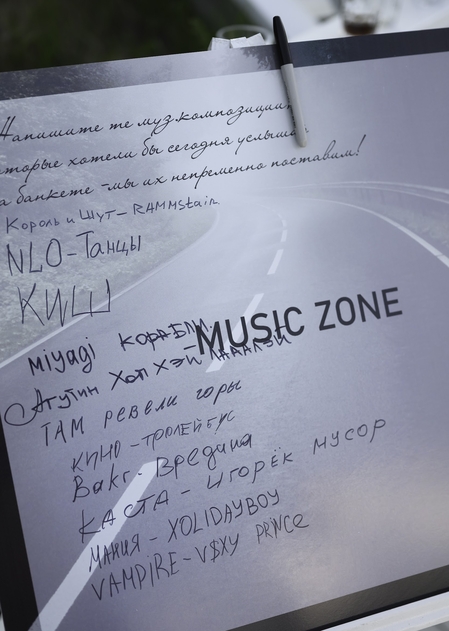 Напишите те муз.композиции,
которые хотели бы сегодня услышать
на банкете - мы их непременно поставим!
Король и Шут - RAMMstain
NLO - Танцы
КИШ
MUSIC ZONE
miyagi корабли
Агутин Хоп Хэй Лалалэй
ТАМ ревели горы
КИНО - тролейбус
Bakr - Вредина
КАСТА - игорёк мусор
МАНИЯ - XOLIDAYBOY
VAMPIRE - V$XY PRiNCe